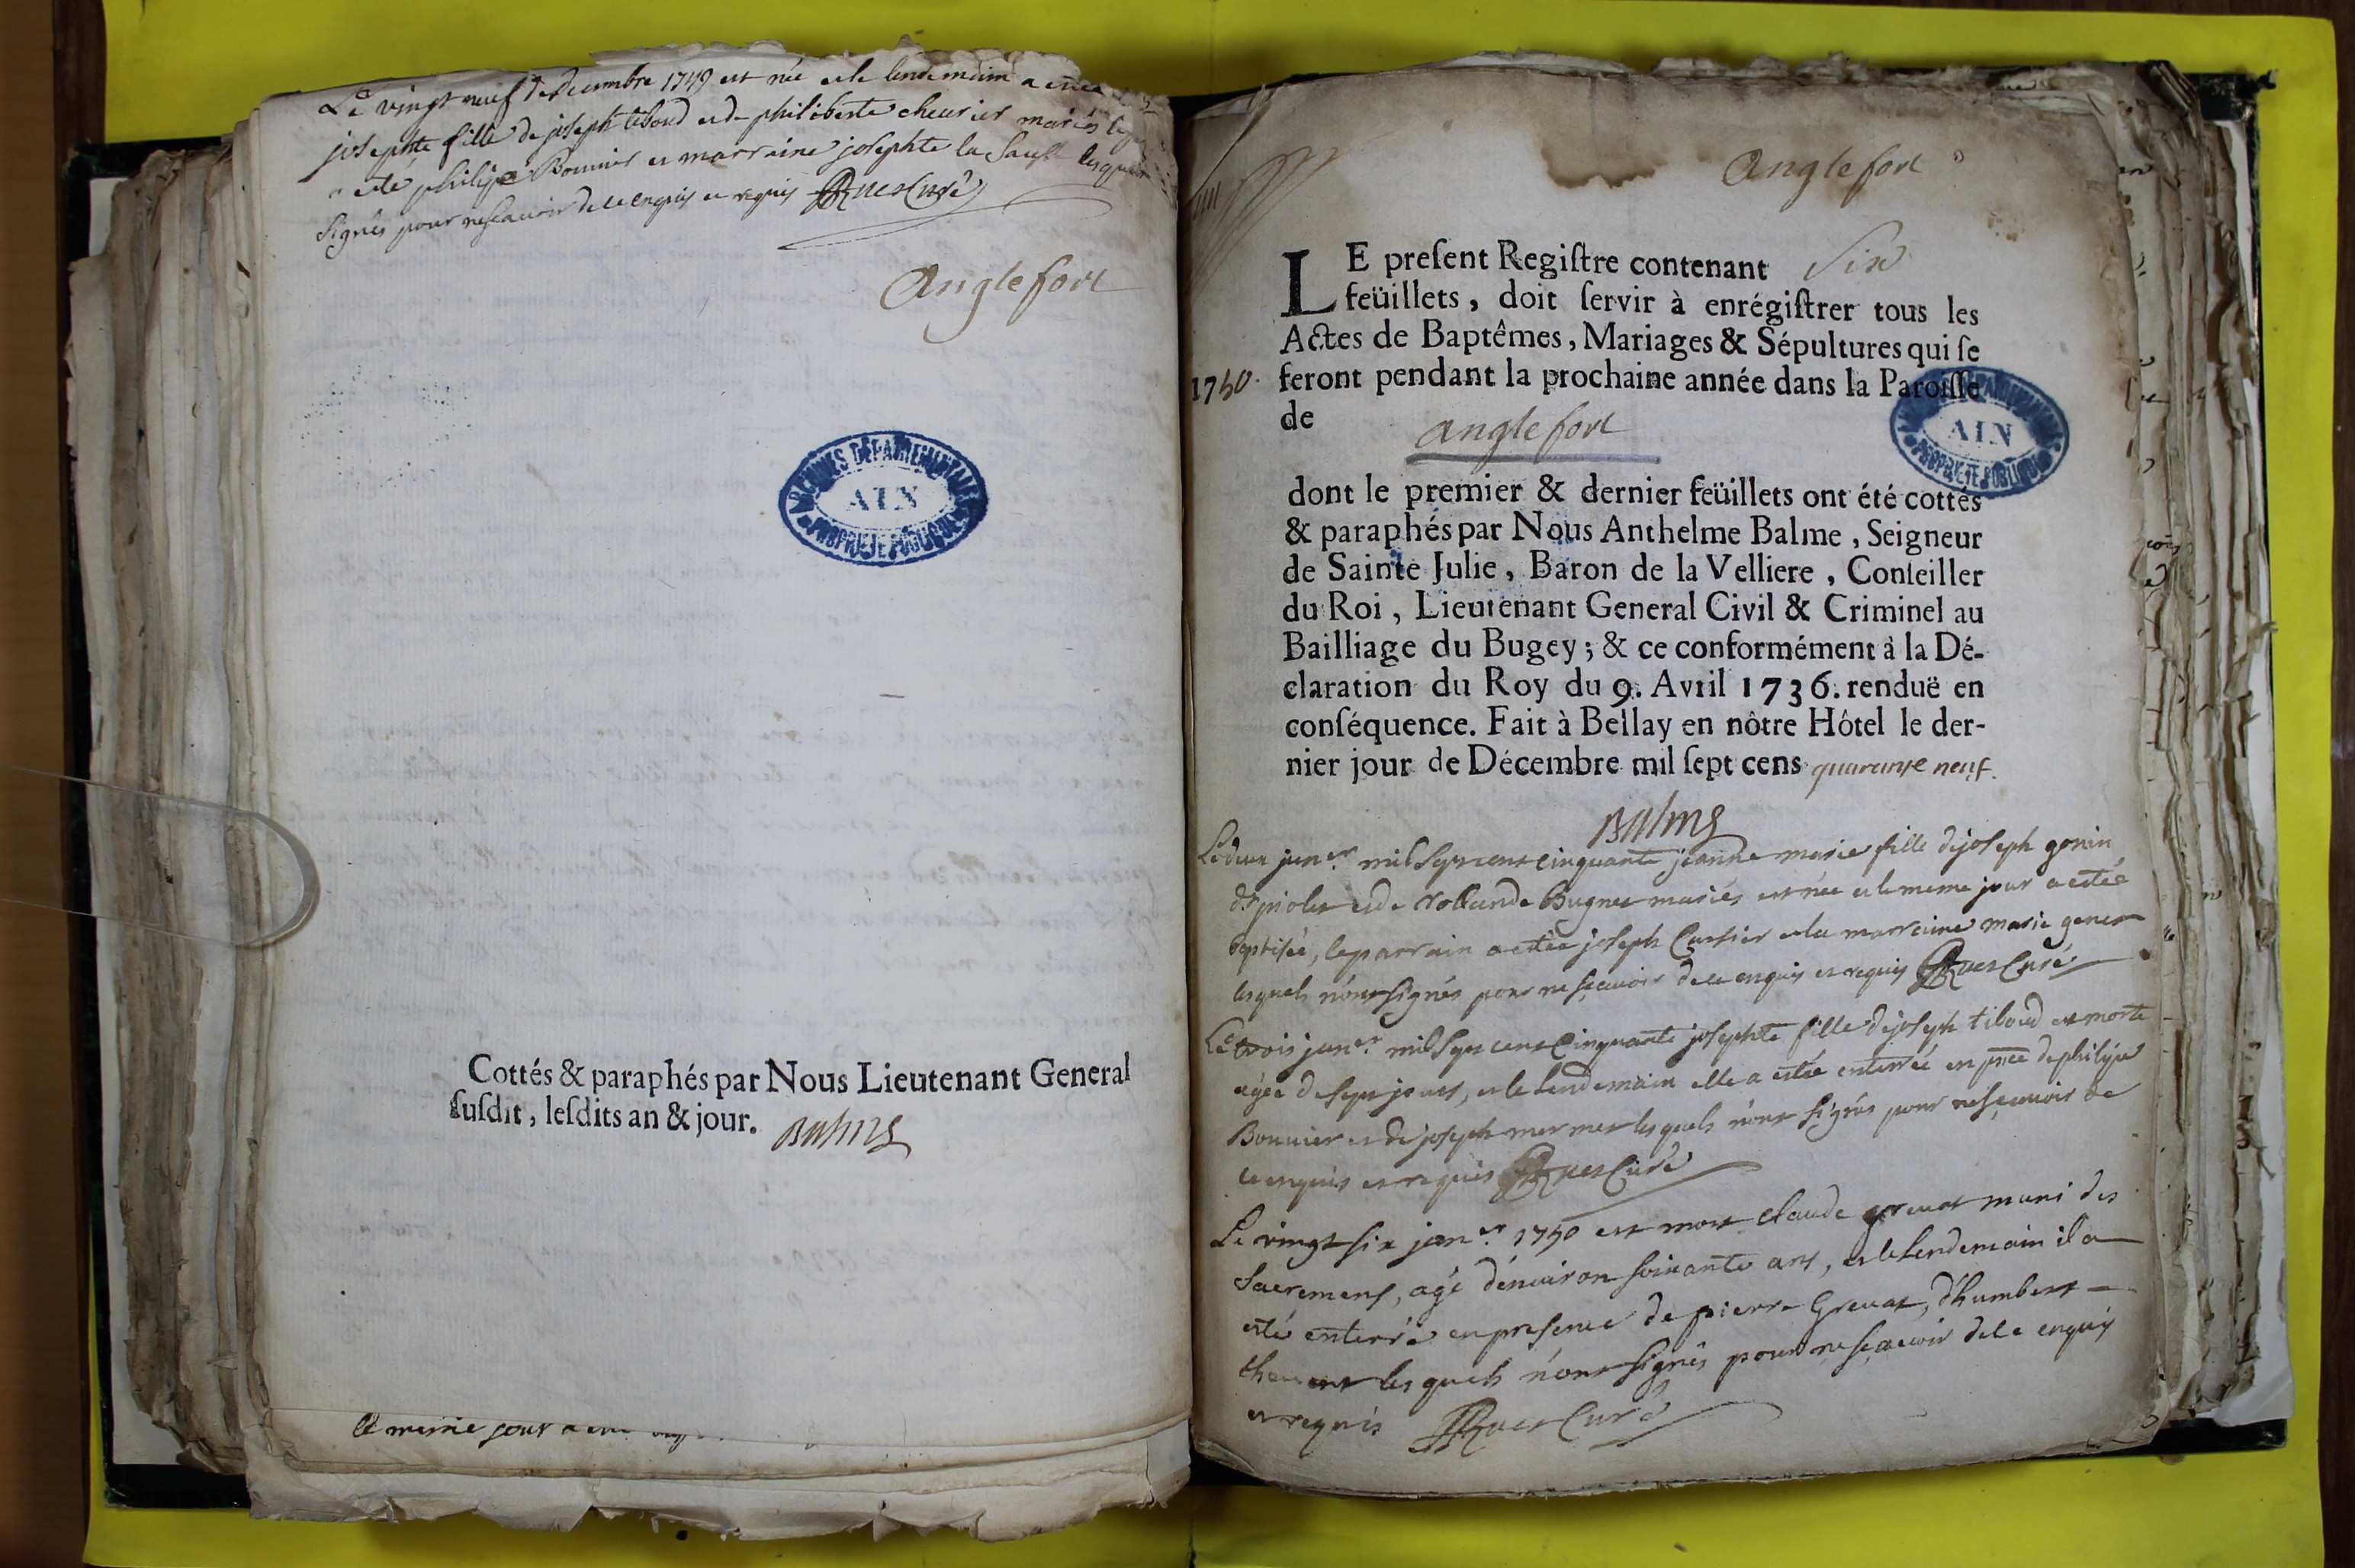 Le vingt neuf decembre 1749 est née et le lendemain a esté
josephte fille de joseph tiboud et de philiberte cheurier mariés le
esté philipe Bonnier et marraine josephte la lesquels
signés pour ne scavoir de ce enquis et requis Curé
Anglefort
ARCHIVES DÉPARTEMENTALES
AIN
PROPRIÉTÉ PUBLIQUE
Cottés & paraphés par Nous Lieutenant General
ſuſdit, leſdits an & jour. Balme
le meme jour a esté
Anglefort
LE preſent Regiſtre contenant Six
feüillets, doit ſervir à enrégiſtrer tous les
Actes de Baptêmes, Mariages & Sépultures qui ſe
1750. feront pendant la prochaine année dans la Paroiſſe
de
anglefort
AIN
PROPRIÉTÉ PUBLIQUE
dont le premier & dernier feüillets ont été cottés
& paraphés par Nous Anthelme Balme, Seigneur
de Sainte Julie, Baron de la Velliere, Conſeiller
du Roi, Lieutenant General Civil & Criminel au
Bailliage du Bugey; & ce conformément à la Dé-
claration du Roy du 9. Avril 1736. renduë en
conſéquence. Fait à Bellay en nôtre Hôtel le der-
nier jour de Décembre mil ſept cens quarante neuf.
Balme
Le deux janer. mil sept cent cinquante jeanne marie fille de joseph gonin
et de rollande Bugnet mariés est née et le meme jour a estée
baptisée, le parrain a estée joseph Cartier et la marraine marie genet
lesquels n'ont signés pour ne scavoir de ce enquis et requis Curé
Le trois janer. mil sept cent Cinquante josephte fille de joseph tiboud est morte
agée de sept jours, et le lendemain elle a estée enterrée en pnce de philipe
Bonnier et de joseph mermet lesquels n'ont signés pour ne scavoir de
ce enquis et requis Curé
Le vingt six janer. 1750 est mort claude grevat muni des
sacremens, agé d'environ soixante ans, et le lendemain il a
esté enterré en presence de pierre Grevat, d'humbert
lesquels n'ont signés pour ne scavoir de ce enquis
et requis Curé